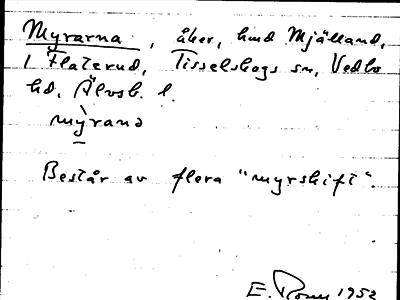 Myrarna, åker, hmd Mjälland,
1 Flaterud, Tisselskogs sn, Vedbo
hd, Älvsb. l.
myrana
Består av flera "myrskift".
E. 1952